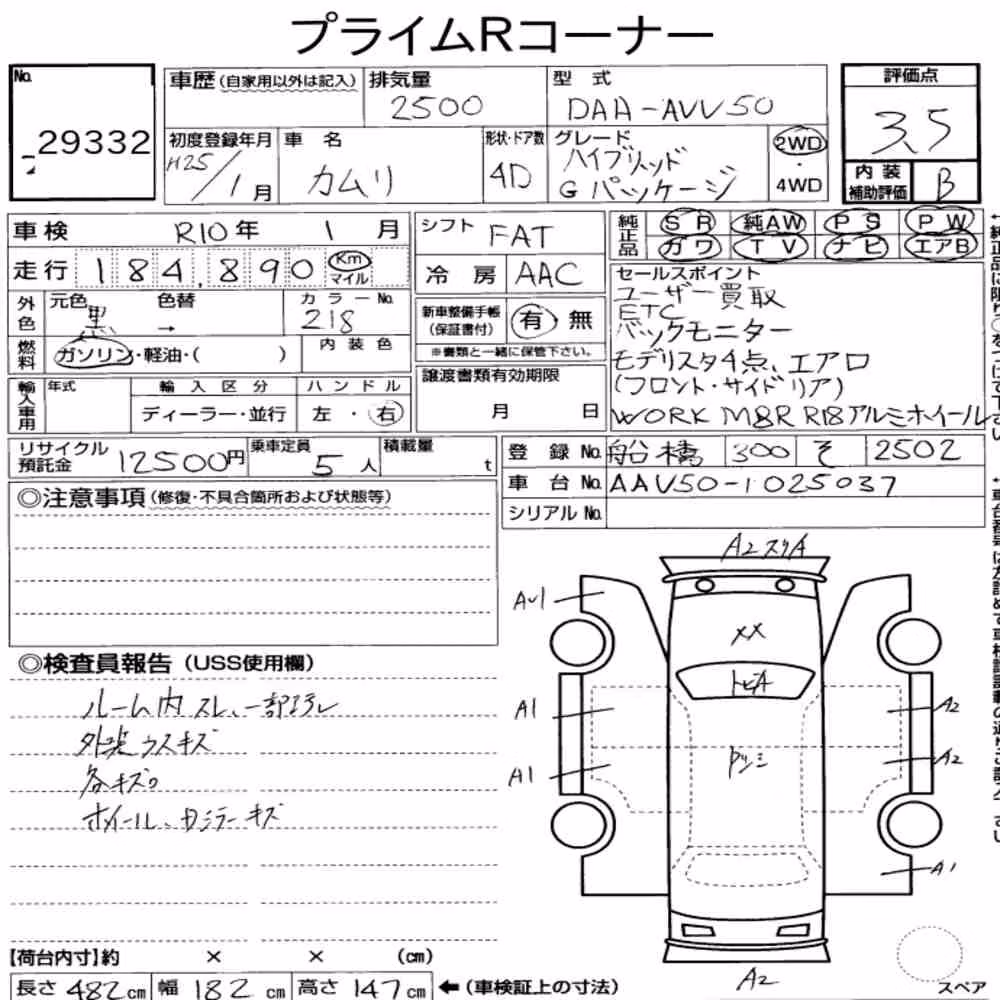 プライムRコーナー
No. 29332
車歴(自家用以外は記入) 排気量 2500 型式 DAA-AVV50
評価点 3.5
内装補助評価 B
初度登録年月 H25/1月 車名 カムリ 形状・ドア数 4D グレード ハイブリッド Gパッケージ 2WD・4WD
車検 R10年 1月 シフト FAT
走行 184,890 Km マイル 冷房 AAC
純正品 SR 純AW PS PW
カワ TV ナビ エアB
外色 元色 黒 → 色替 カラーNo. 218
新車整備手帳(保証書付) 有 無
※書類と一緒に保管下さい。
燃料 ガソリン・軽油・( ) 内装色
輸入車用 年式 輸入区分 ディーラー・並行 ハンドル 左・右
譲渡書類有効期限 月 日
セールスポイント
ユーザー買取
ETC
バックモニター
モデリスタ4点、エアロ
(フロント・サイド リア)
WORK M8R R18アルミホイール
リサイクル預託金 12500円 乗車定員 5人 積載量 t
登録No. 船橋 300 そ 2502
車台No. AAV50-1025037
シリアルNo.
◎注意事項(修復・不具合箇所および状態等)
◎検査員報告(USS使用欄)
ルーム内スレ、一部汚レ
外装 ウスキズ
各キズ
ホイール、キズ
A2 スリA
AU1
XX
トビA
A1
A1
A2
A2
A1
A2
スペア
【荷台内寸】約 × × (cm)
長さ 482cm 幅 182cm 高さ 147cm ←(車検証上の寸法)